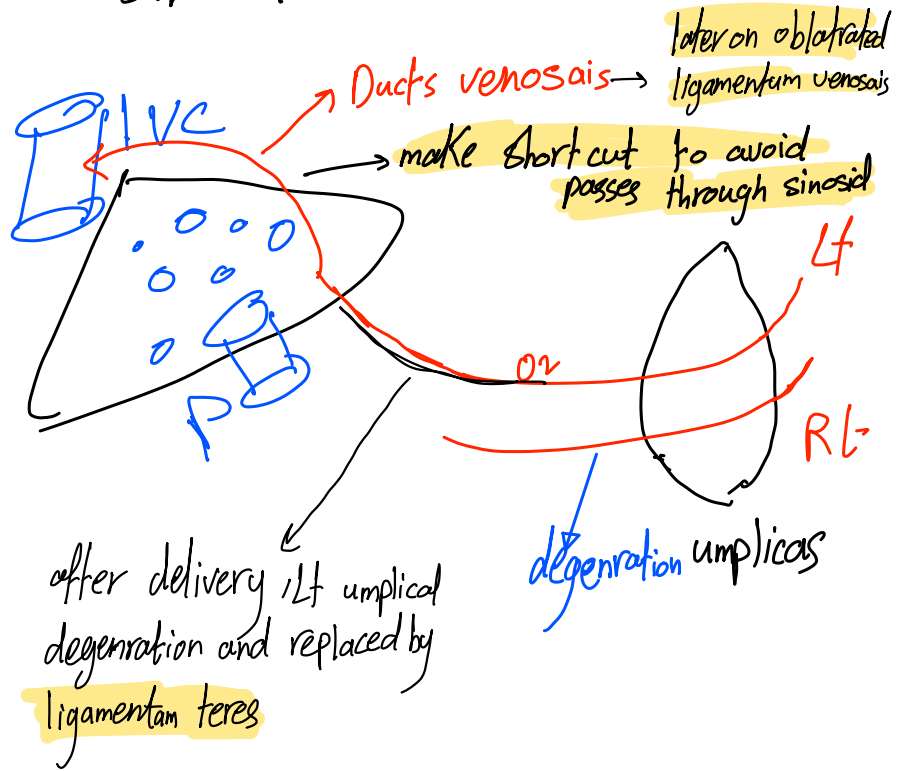 later on oblatrated
Ducts venosais → ligamentum venosais
IVC
make short cut to avoid
passes through sinosid
Lt
O2
P
Rt
degenration umplicas
after delivery, Lt umplical
degenration and replaced by
ligamentam teres